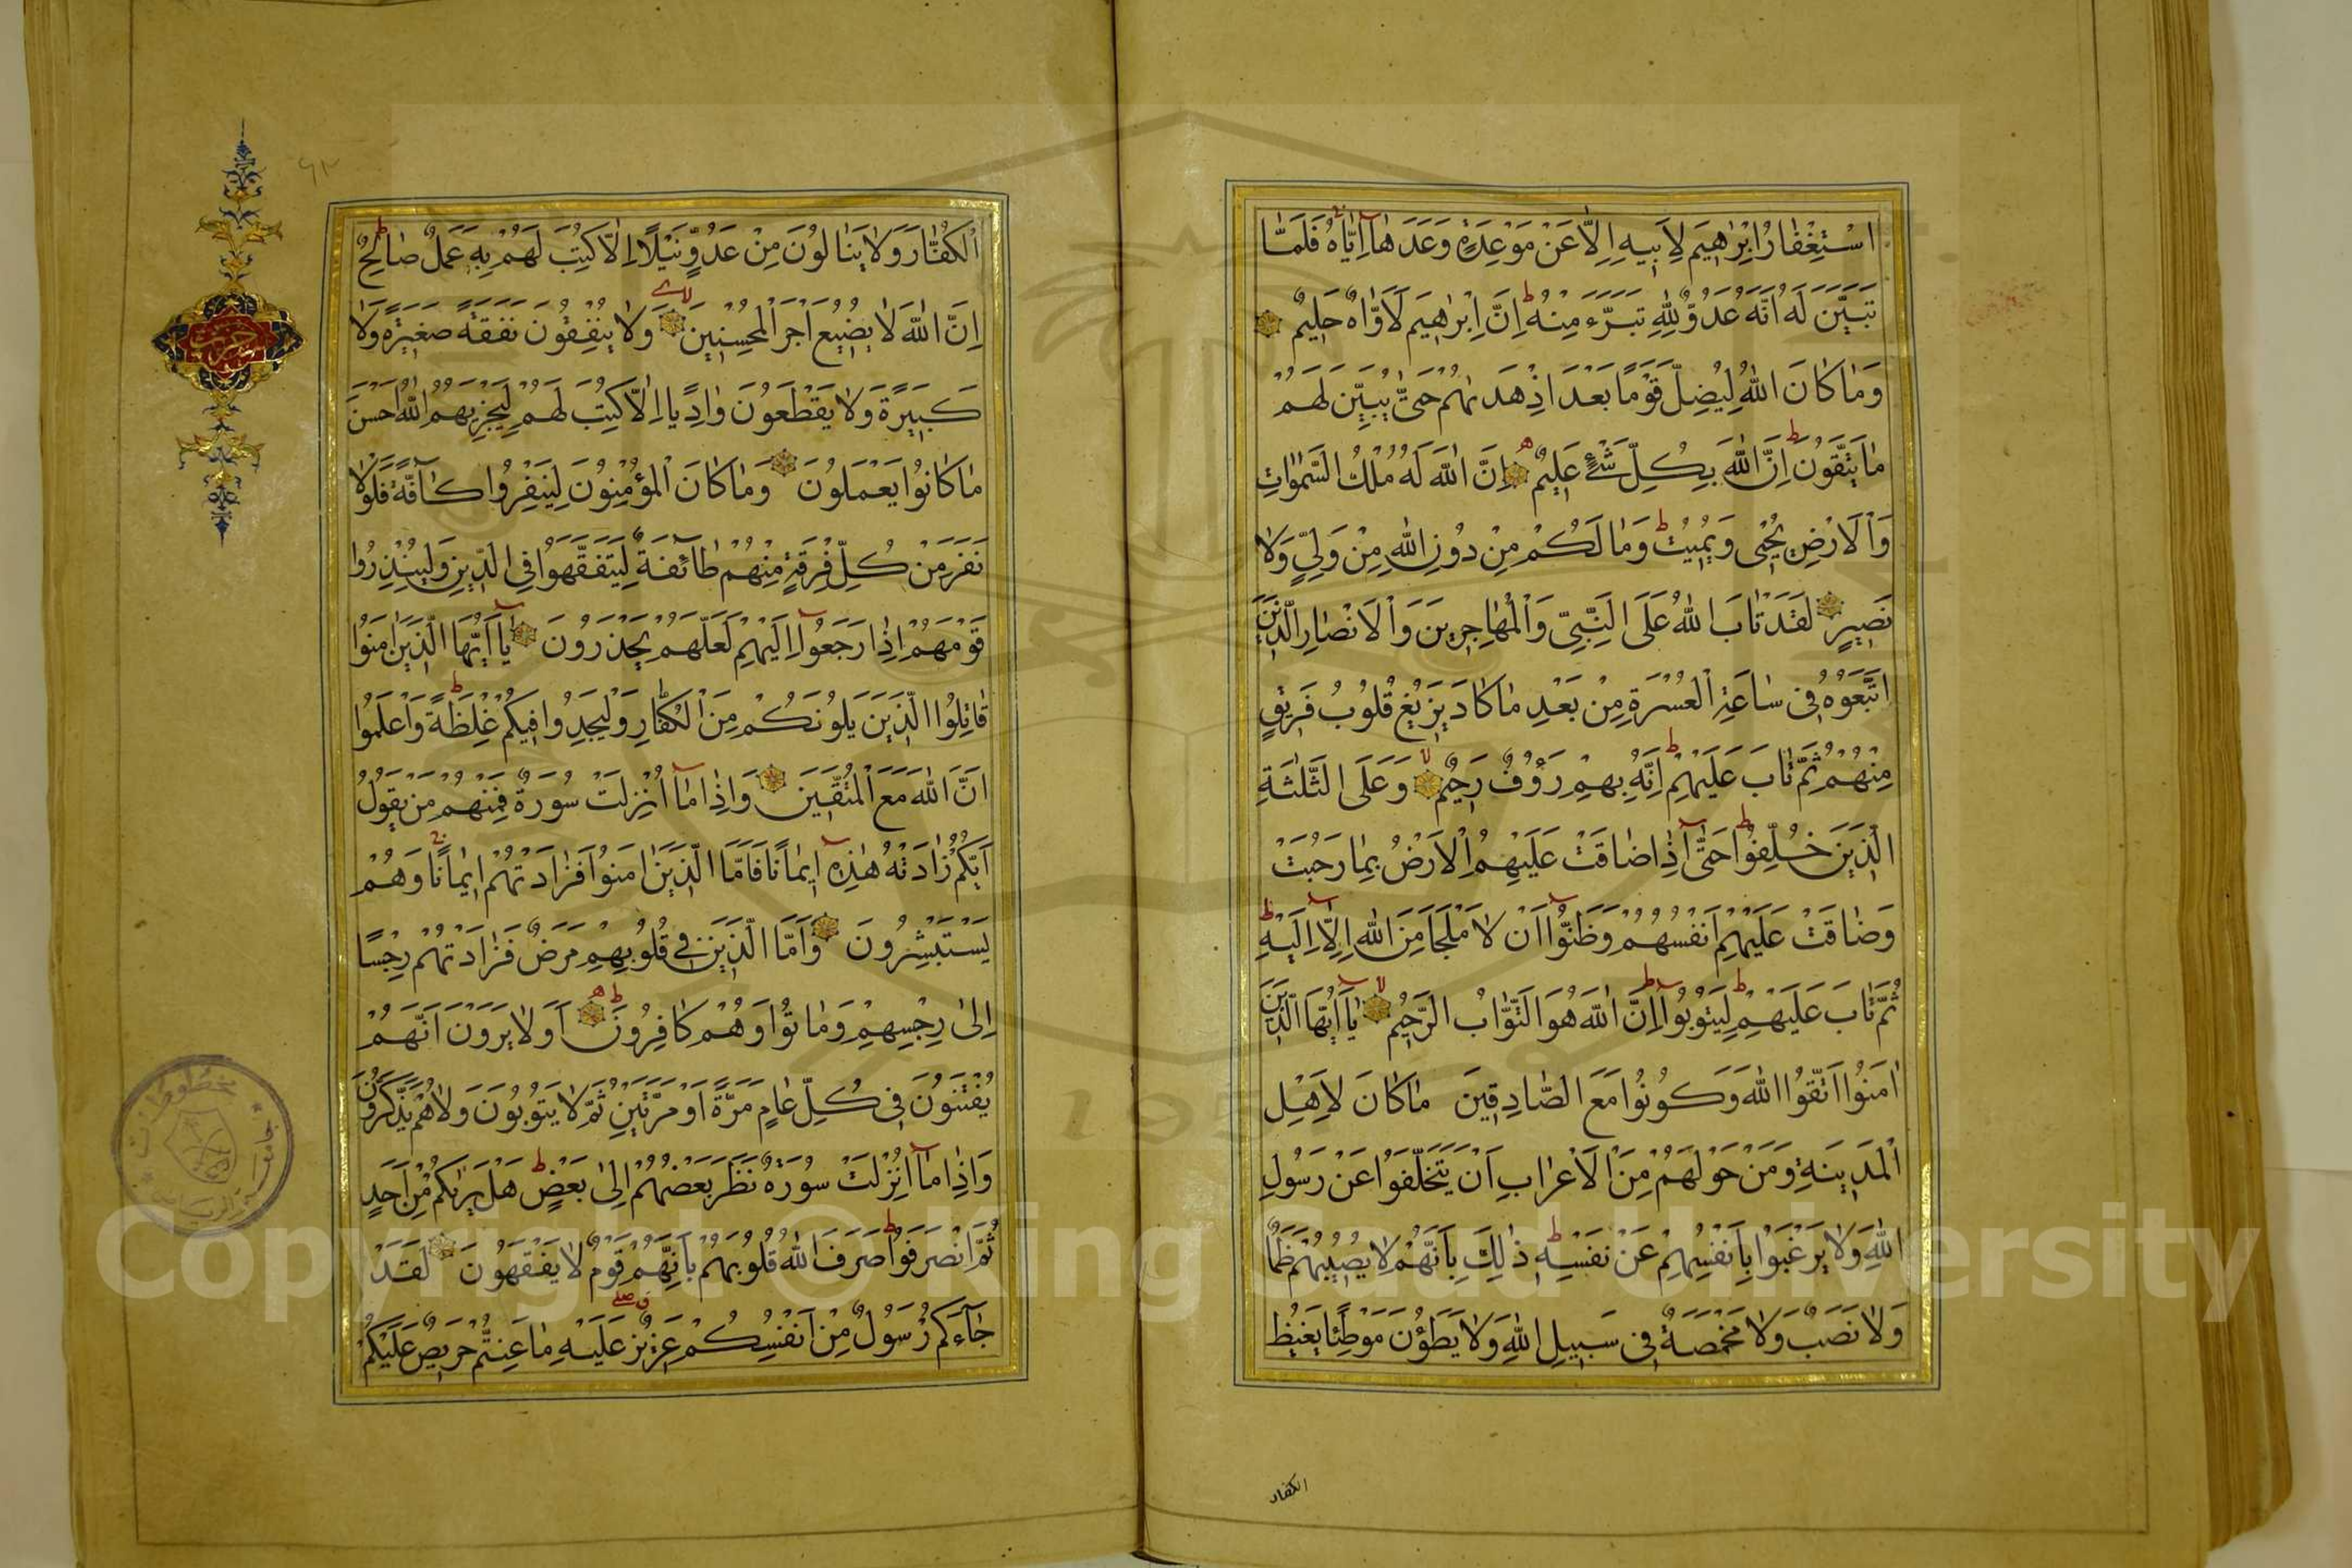 اسْتِغْفَارُ اِبْرٰهِيمَ لِاَبِيهِ اِلَّا عَنْ مَوْعِدَةٍ وَعَدَهَآ اِيَّاهُ فَلَمَّا
تَبَيَّنَ لَهُ اَنَّهُ عَدُوٌّ لِلّٰهِ تَبَرَّءَ مِنْهُ ط اِنَّ اِبْرٰهِيمَ لَاَوَّاهٌ حَلِيمٌ
وَمَا كَانَ اللّٰهُ لِيُضِلَّ قَوْمًا بَعْدَ اِذْ هَدٰيهُمْ حَتّٰى يُبَيِّنَ لَهُمْ
مَا يَتَّقُونَ ط اِنَّ اللّٰهَ بِكُلِّ شَيْءٍ عَلِيمٌ اِنَّ اللّٰهَ لَهُ مُلْكُ السَّمٰوَاتِ
وَالْاَرْضِ يُحْيِى وَيُمِيتُ ط وَمَا لَكُمْ مِنْ دُونِ اللّٰهِ مِنْ وَلِيٍّ وَلَا
نَصِيرٍ لَقَدْ تَابَ اللّٰهُ عَلَى النَّبِيِّ وَالْمُهَاجِرِينَ وَالْاَنْصَارِ الَّذِينَ
اتَّبَعُوهُ فِى سَاعَةِ الْعُسْرَةِ مِنْ بَعْدِ مَا كَادَ يَزِيغُ قُلُوبُ فَرِيقٍ
مِنْهُمْ ثُمَّ تَابَ عَلَيْهِمْ ط اِنَّهُ بِهِمْ رَؤُفٌ رَحِيمٌ لا وَعَلَى الثَّلٰثَةِ
الَّذِينَ خُلِّفُوا ط حَتّٰٓى اِذَا ضَاقَتْ عَلَيْهِمُ الْاَرْضُ بِمَا رَحُبَتْ
وَضَاقَتْ عَلَيْهِمْ اَنْفُسُهُمْ وَظَنُّٓوا اَنْ لَا مَلْجَاَ مِنَ اللّٰهِ اِلَّٓا اِلَيْهِ ط
ثُمَّ تَابَ عَلَيْهِمْ لِيَتُوبُوا ط اِنَّ اللّٰهَ هُوَ التَّوَّابُ الرَّحِيمُ لا يَآ اَيُّهَا الَّذِينَ
اٰمَنُوا اتَّقُوا اللّٰهَ وَكُونُوا مَعَ الصَّادِقِينَ مَا كَانَ لِاَهْلِ
الْمَدِينَةِ وَمَنْ حَوْلَهُمْ مِنَ الْاَعْرَابِ اَنْ يَتَخَلَّفُوا عَنْ رَسُولِ
اللّٰهِ وَلَا يَرْغَبُوا بِاَنْفُسِهِمْ عَنْ نَفْسِهِ ط ذٰلِكَ بِاَنَّهُمْ لَا يُصِيبُهُمْ ظَمَأٌ
وَلَا نَصَبٌ وَلَا مَخْمَصَةٌ فِى سَبِيلِ اللّٰهِ وَلَا يَطَؤُنَ مَوْطِئًا يَغِيظُ
الكفار
الْكُفَّارَ وَلَا يَنَالُونَ مِنْ عَدُوٍّ نَيْلًا اِلَّا كُتِبَ لَهُمْ بِهِ عَمَلٌ صَالِحٌ ط
اِنَّ اللّٰهَ لَا يُضِيعُ اَجْرَ الْمُحْسِنِينَ لا وَلَا يُنْفِقُونَ نَفَقَةً صَغِيرَةً وَلَا
كَبِيرَةً وَلَا يَقْطَعُونَ وَادِيًا اِلَّا كُتِبَ لَهُمْ لِيَجْزِيَهُمُ اللّٰهُ اَحْسَنَ
مَا كَانُوا يَعْمَلُونَ وَمَا كَانَ الْمُؤْمِنُونَ لِيَنْفِرُوا كَآفَّةً فَلَوْلَا
نَفَرَ مِنْ كُلِّ فِرْقَةٍ مِنْهُمْ طَآئِفَةٌ لِيَتَفَقَّهُوا فِى الدِّينِ وَلِيُنْذِرُوا
قَوْمَهُمْ اِذَا رَجَعُٓوا اِلَيْهِمْ لَعَلَّهُمْ يَحْذَرُونَ يَآ اَيُّهَا الَّذِينَ اٰمَنُوا
قَاتِلُوا الَّذِينَ يَلُونَكُمْ مِنَ الْكُفَّارِ وَلْيَجِدُوا فِيكُمْ غِلْظَةً ط وَاعْلَمُوا
اَنَّ اللّٰهَ مَعَ الْمُتَّقِينَ وَاِذَا مَآ اُنْزِلَتْ سُورَةٌ فَمِنْهُمْ مَنْ يَقُولُ
اَيُّكُمْ زَادَتْهُ هٰذِهِٓ اِيمَانًا فَاَمَّا الَّذِينَ اٰمَنُوا فَزَادَتْهُمْ اِيمَانًا وَهُمْ
يَسْتَبْشِرُونَ وَاَمَّا الَّذِينَ فِى قُلُوبِهِمْ مَرَضٌ فَزَادَتْهُمْ رِجْسًا
اِلٰى رِجْسِهِمْ وَمَاتُوا وَهُمْ كَافِرُونَ اَوَلَا يَرَوْنَ اَنَّهُمْ
يُفْتَنُونَ فِى كُلِّ عَامٍ مَرَّةً اَوْ مَرَّتَيْنِ ثُمَّ لَا يَتُوبُونَ وَلَا هُمْ يَذَّكَّرُونَ
وَاِذَا مَآ اُنْزِلَتْ سُورَةٌ نَظَرَ بَعْضُهُمْ اِلٰى بَعْضٍ ط هَلْ يَرٰيكُمْ مِنْ اَحَدٍ
ثُمَّ انْصَرَفُوا ط صَرَفَ اللّٰهُ قُلُوبَهُمْ بِاَنَّهُمْ قَوْمٌ لَا يَفْقَهُونَ لَقَدْ
جَآءَكُمْ رَسُولٌ مِنْ اَنْفُسِكُمْ عَزِيزٌ عَلَيْهِ مَا عَنِتُّمْ حَرِيصٌ عَلَيْكُمْ
Copyright © King Saud University